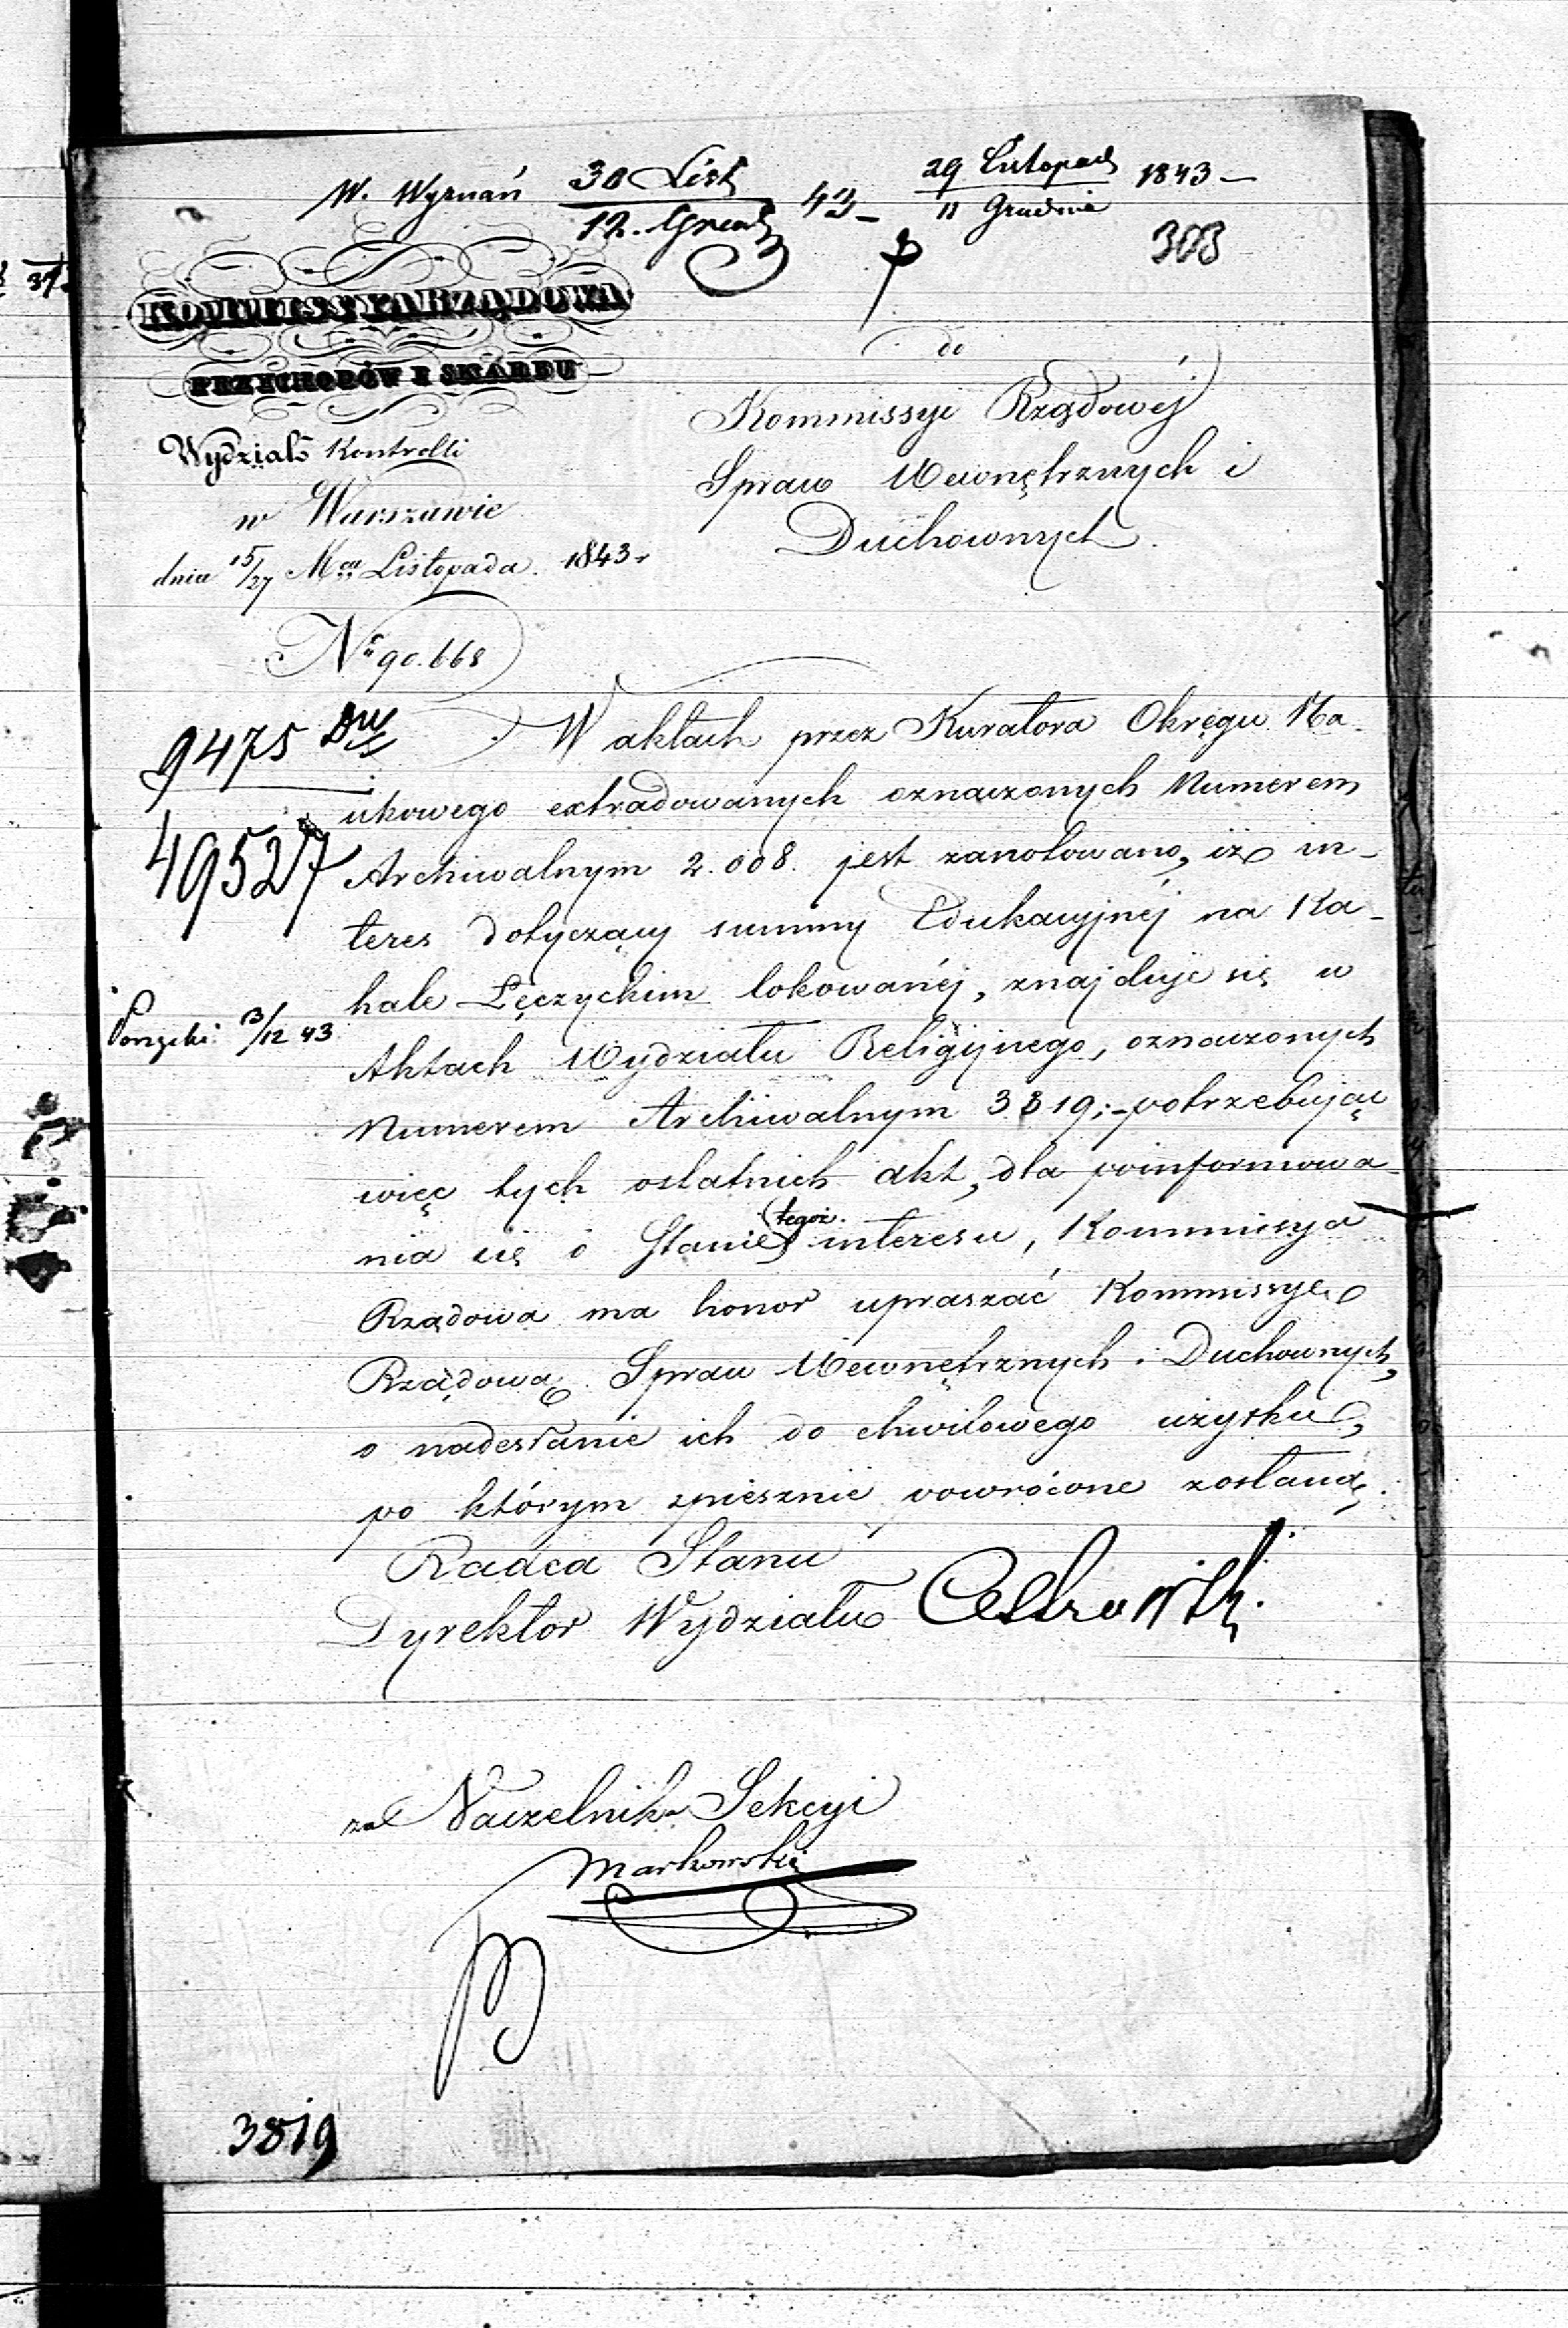 W. Wyznań 30 List / 12. Grud 43 – 29 Listopad / 11 Grudnia 1843 –
303
KOMMISSYA RZĄDOWA
PRZYCHODÓW I SKARBU
Wydział Kontrolli
w Warszawie
dnia 15/27 Mca Listopada 1843 r
Nr 90.668
do
Kommissyi Rządowéj
Spraw Wewnętrznych i
Duchownych.
9475
49527
W aktach przez Kuratora Okręgu Na-
ukowego extradowanych oznaczonych Numerem
Archiwalnym 2.008. jest zanotowano, iż in-
teres dotyczący summy Edukacyjnéj na Ka-
hale Łęczyckim lokowanéj, znajduje się w
Aktach Wydziału Religijnego, oznaczonych
Numerem Archiwalnym 3819; – potrzebując
więc tych ostatnich akt, dla poinformowa-
nia się o Stanie tegoż. interesu, Kommissya
Rządowa ma honor upraszać Kommissyę
Rządową Spraw Wewnętrznych i Duchownych,
o nadesłanie ich do chwilowego użytku,
po którym spiesznie powrócone zostaną.
13/12 43
Radca Stanu
Dyrektor Wydziału
za Naczelnika Sekcyi
Markowski
3819